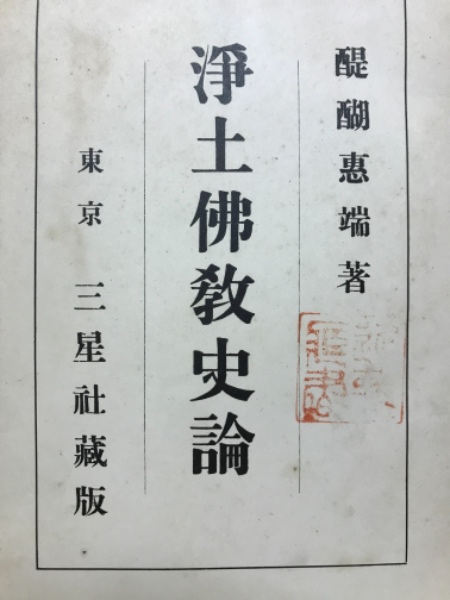 醍醐惠端著
淨土佛敎史論
東京 三星社藏版